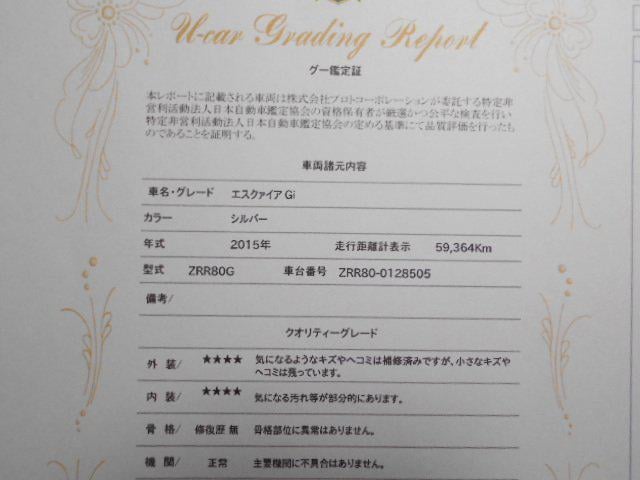 U-car Grading Report
グー鑑定証
本レポートに記載される車両は株式会社プロトコーポレーションが委託する特定非
営利活動法人日本自動車鑑定協会の資格保有者が厳選かつ公平な検査を行い
特定非営利活動法人日本自動車鑑定協会の定める基準にて品質評価を行ったも
のであることを証明する。
車両諸元内容
車名・グレード エスクァイア Gi
カラー シルバー
年式 2015年 走行距離計表示 59,364Km
型式 ZRR80G 車台番号 ZRR80-0128505
備考/
クオリティーグレード
外 装/ ★★★★ 気になるようなキズやヘコミは補修済みですが、小さなキズや
ヘコミは残っています。
内 装/ ★★★★ 気になる汚れ等が部分的にあります。
骨 格/ 修復歴 無 骨格部位に異常はありません。
機 関/ 正常 主要機関に不具合はありません。